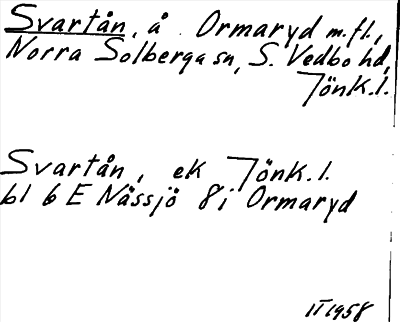 Svartån, å Ormaryd m.fl.,
Norra Solberga sn, S. Vedbo hd,
Jönk.l.
Svartån, ek Jönk.l.
bl 6 E Nässjö 8i Ormaryd
II 1958